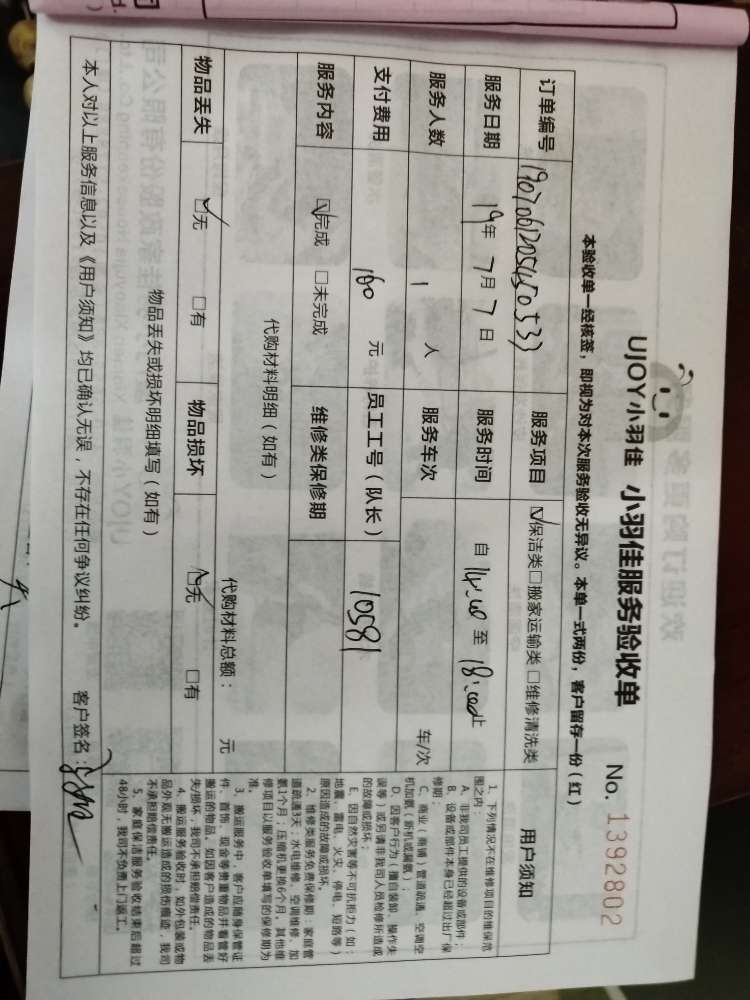 UJOY小羽佳 小羽佳服务验收单 No. 1392802
本验收单一经核签，即视为对本次服务验收无异议。本单一式两份，客户留存一份（红）
订单编号 服务项目 ☑保洁类 □搬家运输类 □维修清洗类
服务日期 19年7月7日 服务时间 自 至 止
服务人数 1 人 服务车次 车/次
支付费用 160 元 员工工号（队长） 10581
服务内容 ☑完成 □未完成 维修类保修期
代购材料明细（如有） 代购材料总额： 元
物品丢失 ☑无 □有 物品损坏 ☑无 □有
物品丢失或损坏明细填写（如有）
本人对以上服务信息以及《用户须知》均已确认无误，不存在任何争议纠纷。 客户签名：
用户须知
1、下列情况不在维修项目的维保范
围之内：
A、非我司员工提供的设备或部件；
B、设备或部件本身已经超过出厂保
修期；
C、商业（商铺）管道疏通、空调空
机加氨（新机或漏氨）；
D、因客户行为（擅自装卸、操作失
误等）或另请非我司人员检修所造成
的故障或损坏；
E、因自然灾害等不可抗拒力（如：
地震、雷电、火灾、停电、短路等）
原因造成的故障或损坏。
2、维修类服务免费保修期：家庭管
道疏通3天；水电维修、空调维修、加
氨1个月；压缩机更换6个月，其他维
修项目以服务验收单填写的保修期为
准。
3、搬运服务中，客户应随身保管证
件、首饰、现金等贵重物品并看管好
搬运的物品，如因客户造成的物品丢
失/损坏，我司不承担赔偿责任。
4、搬运服务验收时，如外包装或物
品外观无搬运造成的损伤痕迹，我司
不承担赔偿责任。
5、家庭保洁服务验收结束后超过
48小时，我司不负责上门返工。